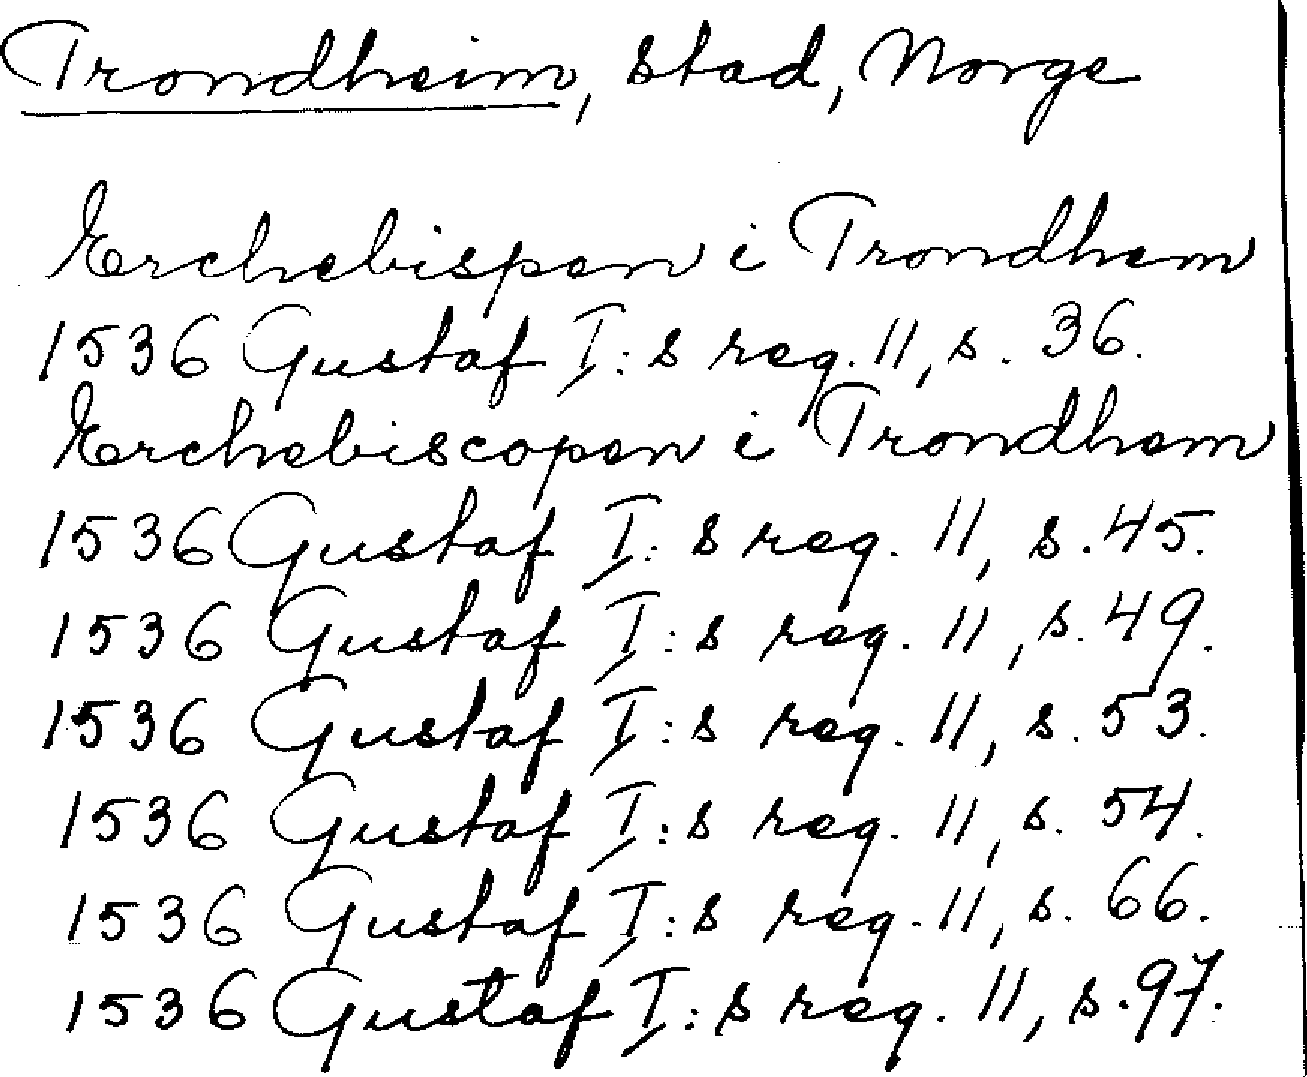 Trondheim, stad, Norge
Erchebispen i Trondhem
1536 Gustaf I:s reg. 11, s. 36.
Erchebiscopen i Trondhem
1536 Gustaf I:s reg. 11, s. 45.
1536 Gustaf I:s reg. 11, s. 49.
1536 Gustaf I:s reg. 11, s. 53.
1536 Gustaf I:s reg. 11, s. 54.
1536 Gustaf I:s reg. 11, s. 66.
1536 Gustaf I:s reg. 11, s. 97.